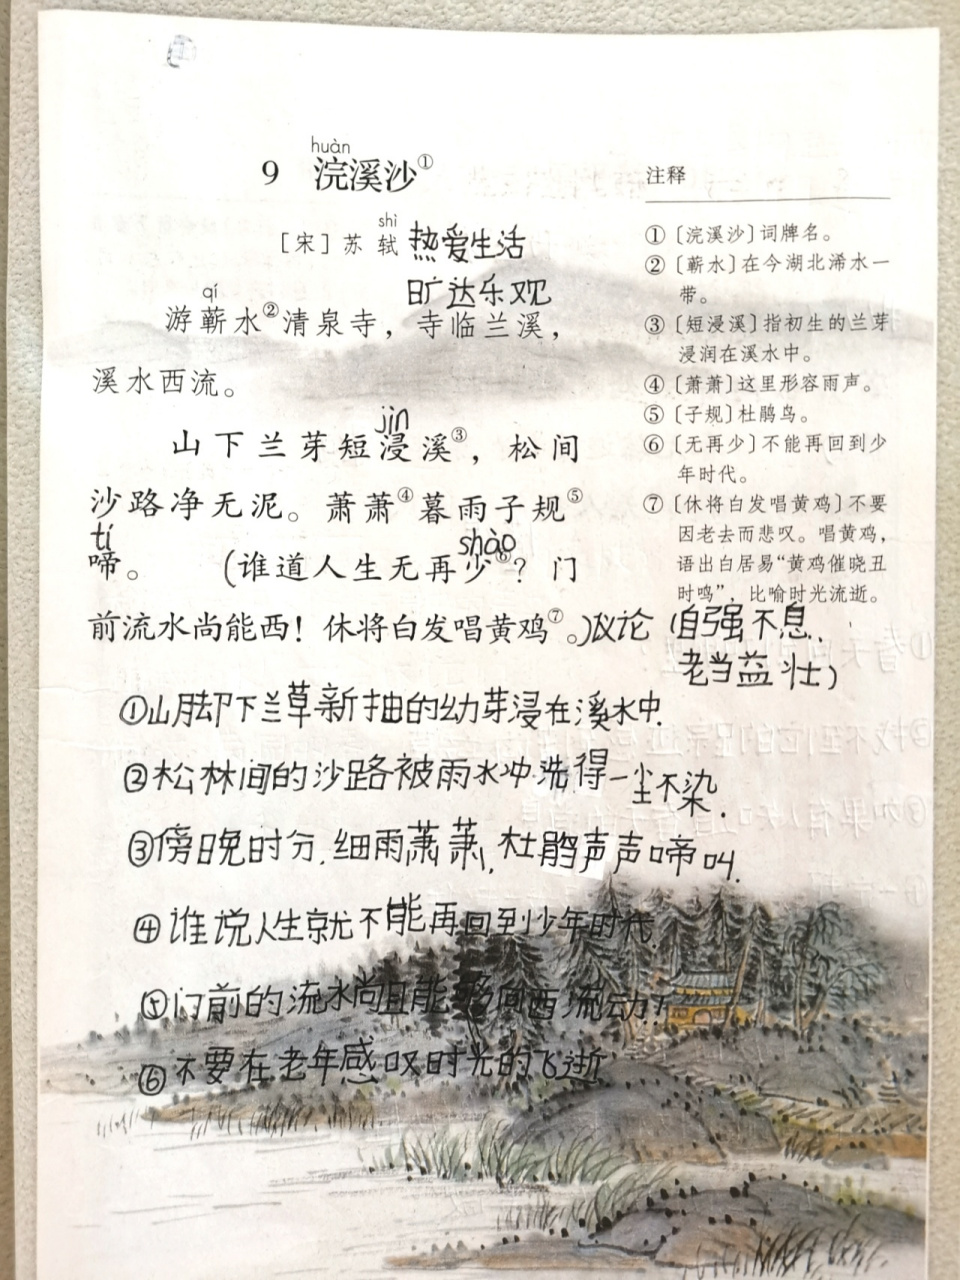 huàn
9 浣溪沙①
shì
[宋] 苏 轼 热爱生活
旷达乐观
qí
游蕲水②清泉寺，寺临兰溪，
溪水西流。
jìn
山下兰芽短浸溪③，松间
沙路净无泥。萧萧④暮雨子规⑤
tí
shào
啼。 (谁道人生无再少⑥？门
前流水尚能西！休将白发唱黄鸡⑦。)议论 (自强不息、
老当益壮)
①山脚下兰草新抽的幼芽浸在溪水中.
②松林间的沙路被雨水冲洗得一尘不染.
③傍晚时分,细雨萧萧,杜鹃声声啼叫.
④谁说人生就不能再回到少年时代.
⑤门前的流水尚且能够向西流动!
⑥不要在老年感叹时光的飞逝
注释
①〔浣溪沙〕词牌名。
②〔蕲水〕在今湖北浠水一
带。
③〔短浸溪〕指初生的兰芽
浸润在溪水中。
④〔萧萧〕这里形容雨声。
⑤〔子规〕杜鹃鸟。
⑥〔无再少〕不能再回到少
年时代。
⑦〔休将白发唱黄鸡〕不要
因老去而悲叹。唱黄鸡，
语出白居易“黄鸡催晓丑
时鸣”，比喻时光流逝。